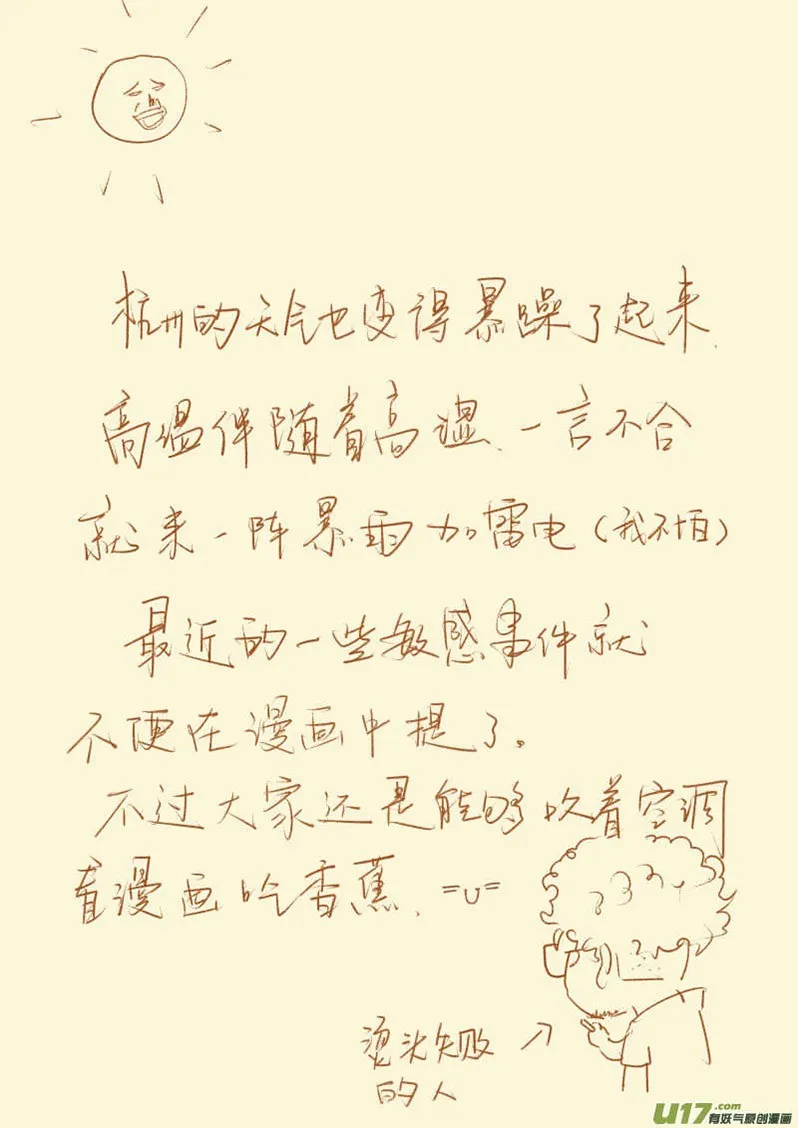 杭州的天气也变得暴躁了起来.
高温伴随着高湿、一言不合
就来一阵暴雨加雷电(我不怕)
最近的一些敏感事件就
不便在漫画中提了。
不过大家还是能够吹着空调
看漫画吃香蕉. =U=
烫头失败
的人
U17.com
有妖气原创漫画